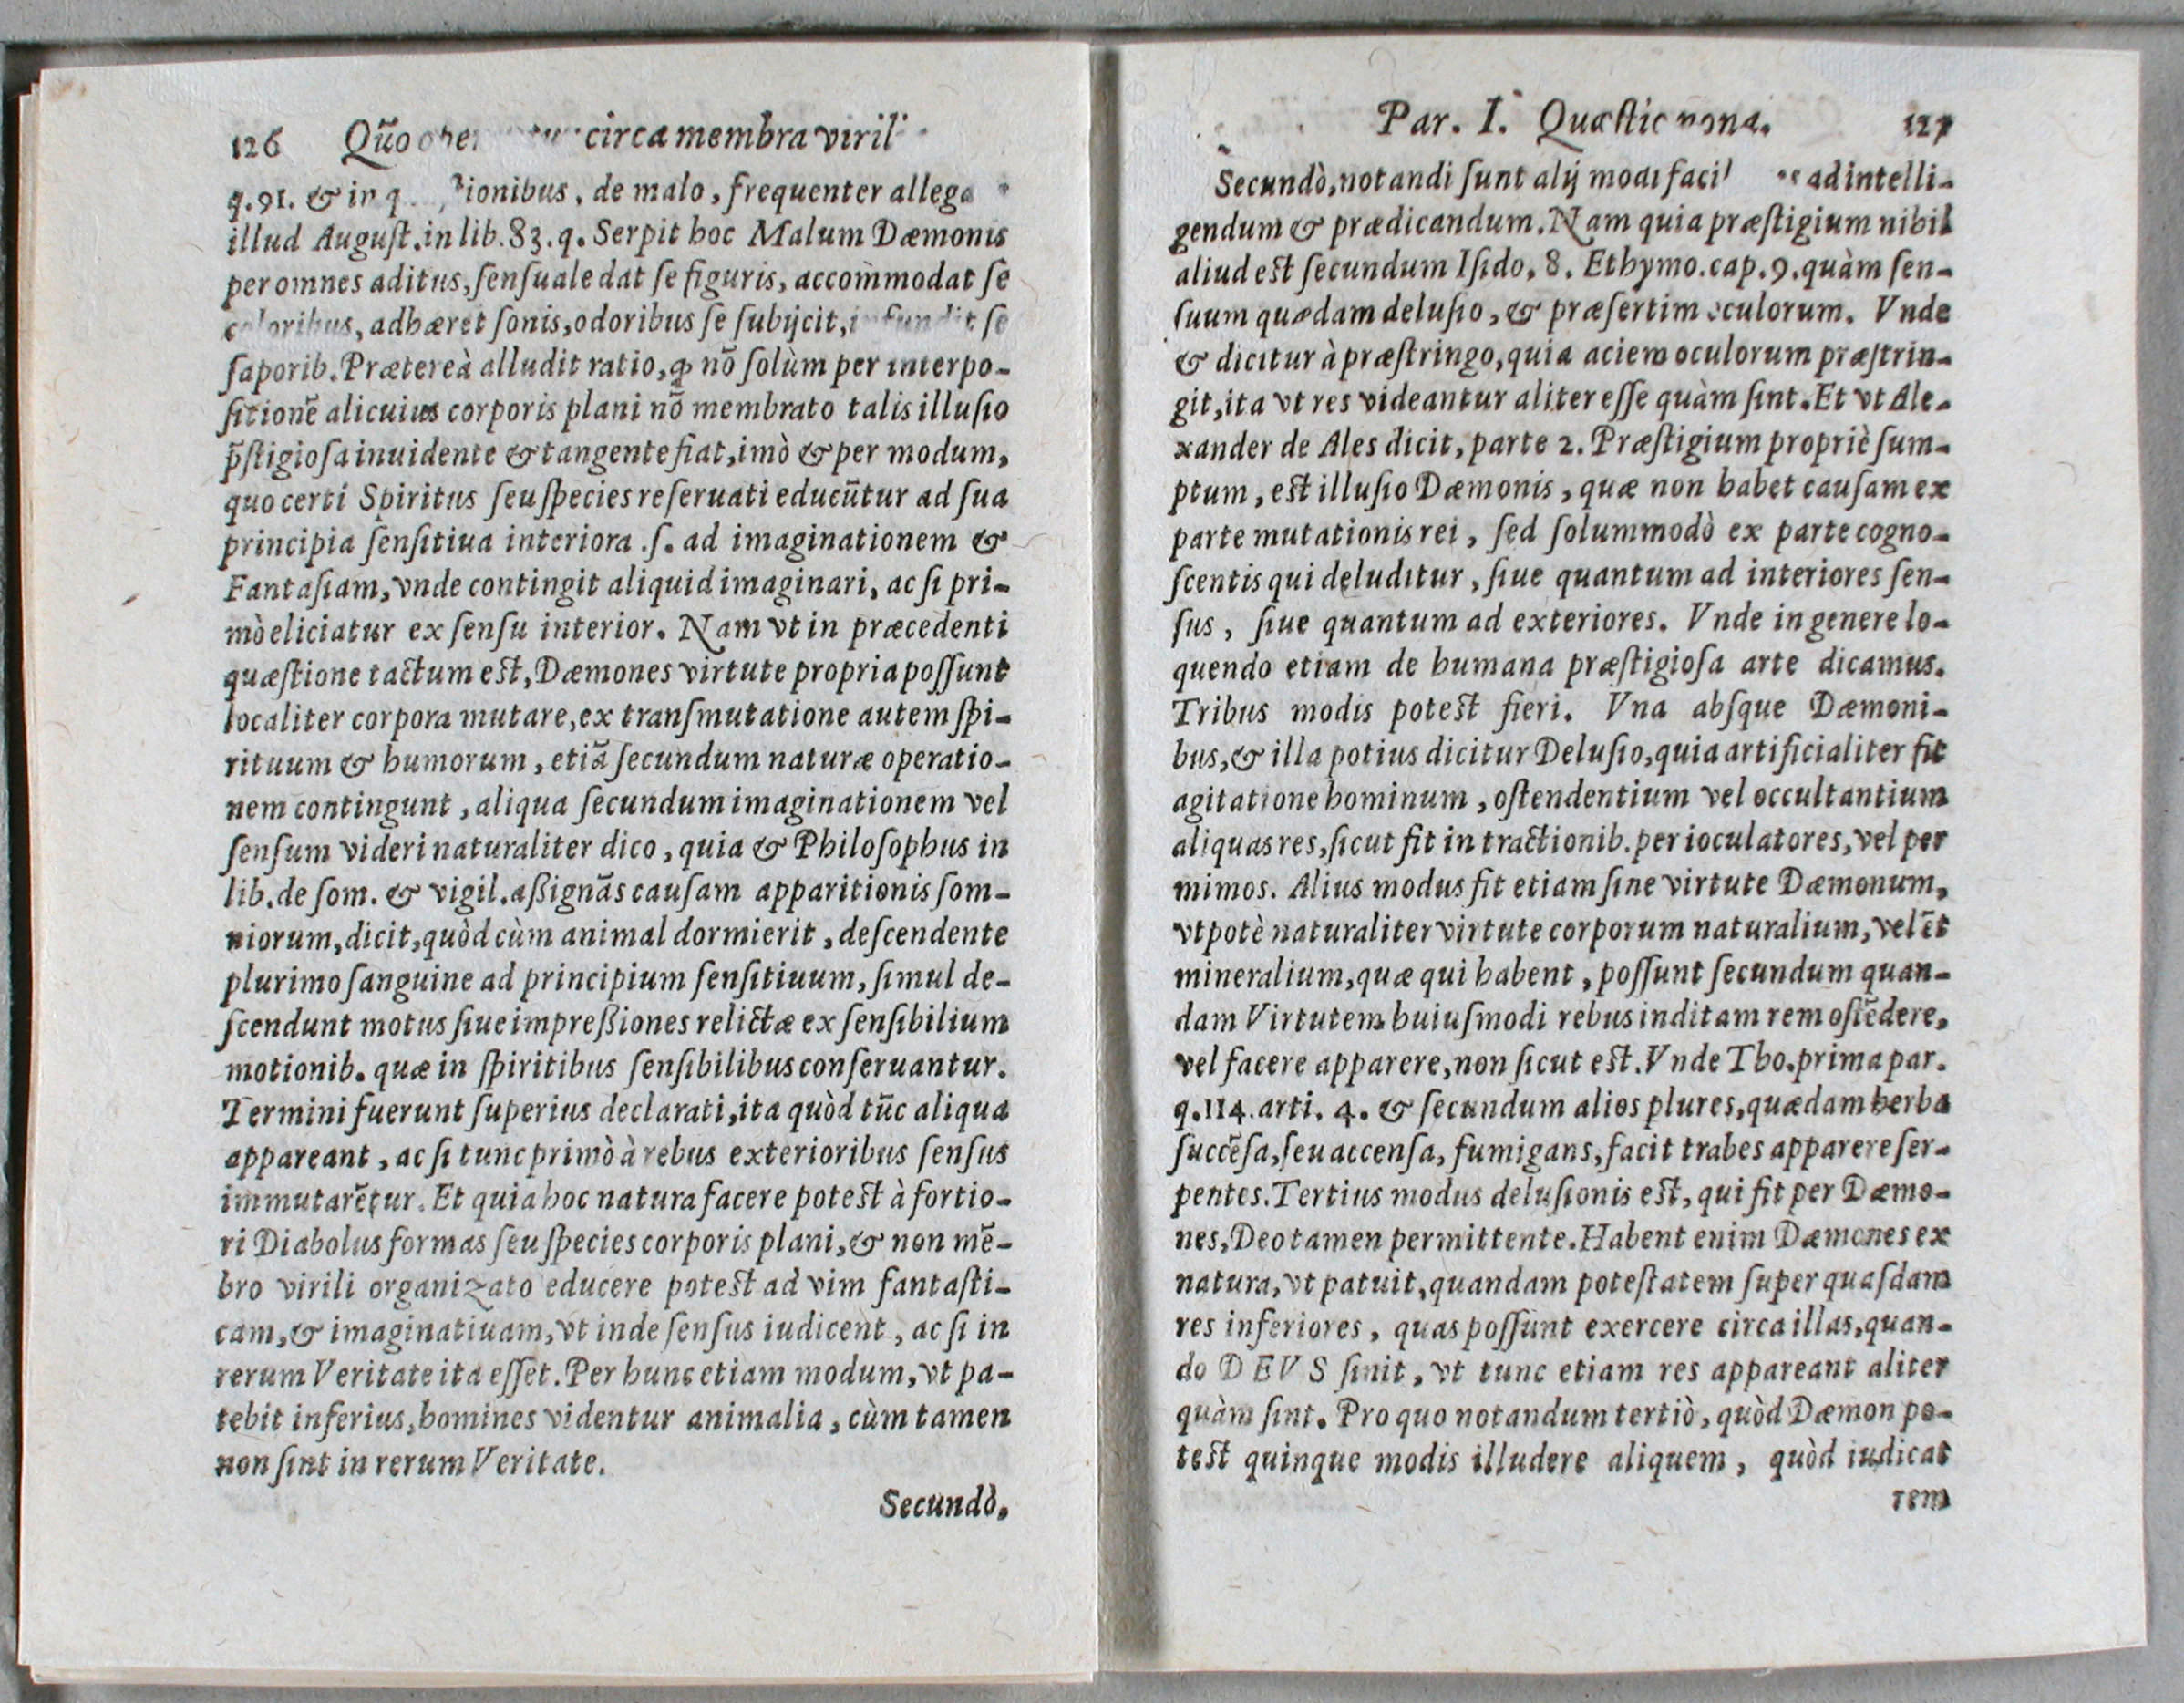 126 circa membra viril
q.91. & in ionibus, de malo, frequenter allega
illud Auguſt.in lib.83.q. Serpit hoc Malum Dæmonis
per omnes aditus, ſenſuale dat ſe figuris, accom̃modat ſe
coloribus, adhæret ſonis, odoribus ſe ſubijcit, infundit ſe
ſaporib. Prætereà alludit ratio, ꝙ nõ ſolùm per interpo-
ſitionẽ alicuius corporis plani nõ membrato talis illuſio
p̃ſtigioſa in uidente & tangente fiat, imò & per modum,
quo certi Spiritus ſeu ſpecies reſeruati educũtur ad ſua
principia ſenſitiua interiora .ſ. ad imaginationem &
Fantaſiam, vnde contingit aliquid imaginari, ac ſi pri-
mò eliciatur ex ſenſu interior. Nam vt in præcedenti
quæſtione tactum eſt, Dæmones virtute propria poſſunt
localiter corpora mutare, ex tranſmutatione autem ſpi-
rituum & humorum, etiã ſecundum naturæ operatio-
nem contingunt, aliqua ſecundum imaginationem vel
ſenſum videri naturaliter dico, quia & Philoſophus in
lib. de ſom. & vigil. aßignãs cauſam apparitionis ſom-
niorum, dicit, quòd cùm animal dormierit, deſcendente
plurimo ſanguine ad principium ſenſitiuum, ſimul de-
ſcendunt motus ſiue impreßiones relictæ ex ſenſibilium
motionib. quæ in ſpiritibus ſenſibilibus conſeruantur.
Termini fuerunt ſuperius declarati, ita quòd tũc aliqua
appareant, ac ſi tunc primò à rebus exterioribus ſenſus
immutarẽtur. Et quia hoc natura facere poteſt à fortio-
ri Diabolus formas ſeu ſpecies corporis plani, & non mẽ-
bro virili organizato educere poteſt ad vim fantaſti-
cam, & imaginatiuam, vt inde ſenſus iudicent, ac ſi in
rerum Veritate ita eſſet. Per hunc etiam modum, vt pa-
tebit inferius, homines videntur animalia, cùm tamen
non ſint in rerum Veritate.
Secundò,
Par. I. Quæſtio nona. 127
Secundò, notandi ſunt alij modi ad intelli-
gendum & prædicandum. Nam quia præſtigium nihil
aliud eſt ſecundum Iſido. 8. Ethymo. cap. 9. quàm ſen-
ſuum quædam deluſio, & præſertim oculorum. Vnde
& dicitur à præſtringo, quia aciem oculorum præſtrin-
git, ita vt res videantur aliter eſſe quàm ſint. Et vt Ale-
xander de Ales dicit, parte 2. Præſtigium propriè ſum-
ptum, eſt illuſio Dæmonis, quæ non habet cauſam ex
parte mutationis rei, ſed ſolummodò ex parte cogno-
ſcentis qui deluditur, ſiue quantum ad interiores ſen-
ſus, ſiue quantum ad exteriores. Vnde in genere lo-
quendo etiam de humana præſtigioſa arte dicamus.
Tribus modis poteſt fieri. Vna abſque Dæmoni-
bus, & illa potius dicitur Deluſio, quia artificialiter fit
agitatione hominum, oſtendentium vel occultantium
aliquas res, ſicut fit in tractionib. per ioculatores, vel per
mimos. Alius modus fit etiam ſine virtute Dæmonum,
vtpotè naturaliter virtute corporum naturalium, vel ẽt
mineralium, quæ qui habent, poſſunt ſecundum quan-
dam Virtutem huiuſmodi rebus inditam rem oſtẽdere,
vel facere apparere, non ſicut eſt. Vnde Tho. prima par.
q.114. arti. 4. & ſecundum alios plures, quædam herba
ſuccẽſa, ſeu accenſa, fumigans, facit trabes apparere ſer-
pentes. Tertius modus deluſionis eſt, qui fit per Dæmo-
nes, Deo tamen permittente. Habent enim Dæmones ex
natura, vt patuit, quandam poteſtatem ſuper quaſdam
res inferiores, quas poſſunt exercere circa illas, quan-
do DEVS ſinit, vt tunc etiam res appareant aliter
quàm ſint. Pro quo notandum tertiò, quòd Dæmon po-
teſt quinque modis illudere aliquem, quòd iudicat
rem